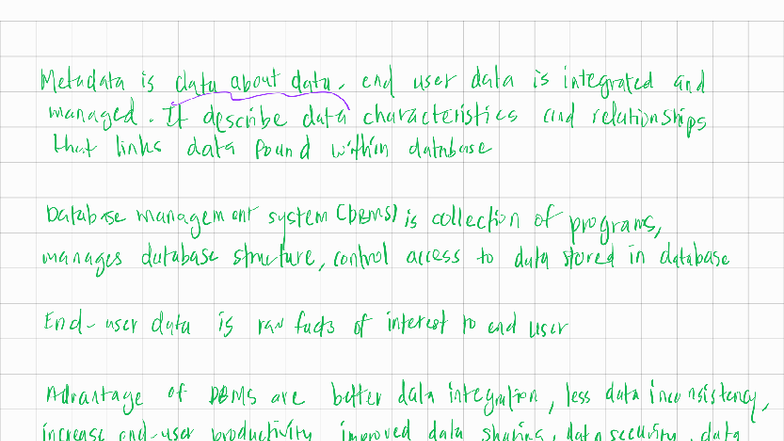 Metadata is data about data, end user data is integrated and
managed. It describe data characteristics and relationships
that links data found within database
Database management system (DBMS) is collection of programs,
manages database structure, control access to data stored in database
End-user data is raw facts of interest to end user
Advantage of DBMS are better data integration, less data inconsistency,
increase end-user productivity, improved data sharing, data security, data